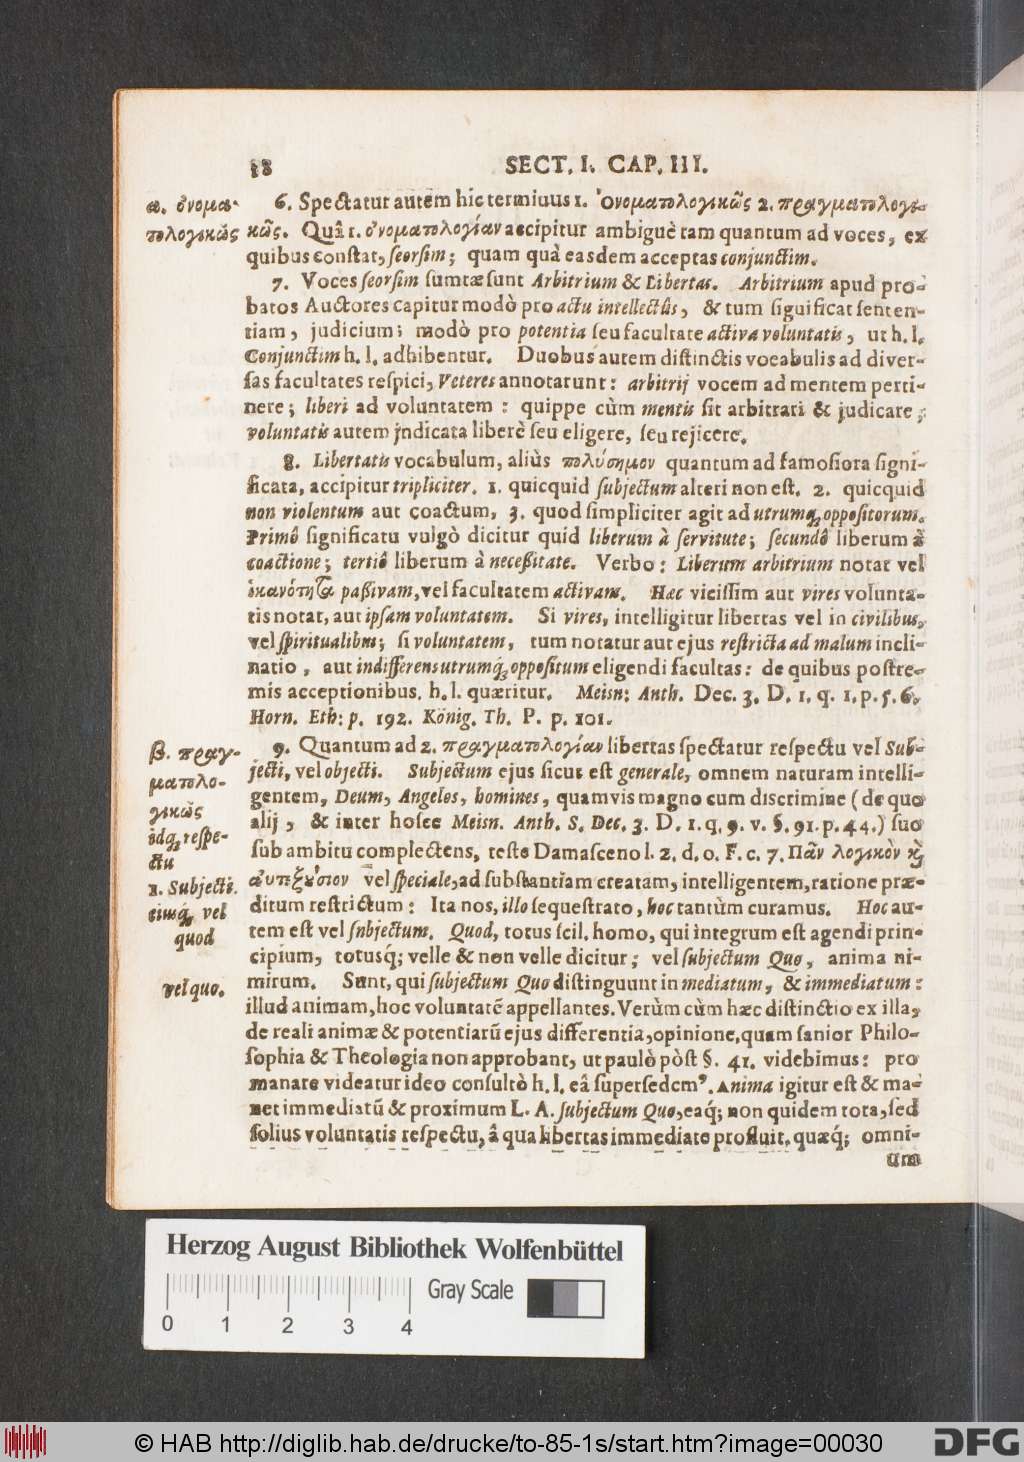 18
SECT. I. CAP. III.
α. ὀνομα-
τολογικῶς
6. Spectatur autem hic terminus 1. Ὀνοματολογικῶς 2. πραγματολογι-
κῶς. Quâ 1. ὀνοματολογίαν accipitur ambiguè tam quantum ad voces, ex
quibus constat, seorsim; quam quà easdem acceptas conjunctim.
7. Voces seorsim sumtæ sunt Arbitrium & Libertas. Arbitrium apud pro-
batos Auctores capitur modò pro actu intellectûs, & tum significat senten-
tiam, judicium; modò pro potentia seu facultate activa voluntatis, ut h. l.
Conjunctim h. l. adhibentur. Duobus autem distinctis vocabulis ad diver-
sas facultates respici, Veteres annotarunt: arbitrij vocem ad mentem perti-
nere; liberi ad voluntatem: quippe cùm mentis sit arbitrari & judicare;
voluntatis autem jndicata liberè seu eligere, seu rejicere.
8. Libertatis vocabulum, aliùs πολύσημον quantum ad famosiora signi-
ficata, accipitur tripliciter. 1. quicquid subjectum alteri non est. 2. quicquid
non violentum aut coactum, 3. quod simpliciter agit ad utrumq; oppositorum.
Primô significatu vulgò dicitur quid liberum à servitute; secundô liberum à
coactione; tertiô liberum à necessitate. Verbo: Liberum arbitrium notat vel
ἱκανότητα passivam, vel facultatem activam. Hæc vicissim aut vires volunta-
tis notat, aut ipsam voluntatem. Si vires, intelligitur libertas vel in civilibus,
vel spiritualibus; si voluntatem, tum notatur aut ejus restricta ad malum incli-
natio, aut indifferens utrumq; oppositum eligendi facultas: de quibus postre-
mis acceptionibus, h. l. quæritur. Meisn: Anth. Dec. 3. D. 1. q. 1. p. 5. 6.
Horn. Eth: p. 192. König. Th. P. p. 101.
β. πραγ-
ματολο-
γικῶς
idq; respe-
ctu
1. Subjecti.
eiusq; vel
quod
vel quo.
9. Quantum ad 2. πραγματολογίαν libertas spectatur respectu vel Sub-
jecti, vel objecti. Subjectum ejus sicut est generale, omnem naturam intelli-
gentem, Deum, Angelos, homines, quamvis magno cum discrimine (de quo
alij, & inter hosce Meisn. Anth. S. Dec. 3. D. 1. q. 9. v. §. 91. p. 44.) suo
sub ambitu complectens, teste Damasceno l. 2. d. o. F. c. 7. Πᾶν λογικὸν κὶ
αυπεξούσιον vel speciale, ad substantiam creatam, intelligentem, ratione præ-
ditum restrictum: Ita nos, illo sequestrato, hoc tantùm curamus. Hoc au-
tem est vel snbjectum. Quod, totus scil. homo, qui integrum est agendi prin-
cipium, totusq; velle & non velle dicitur; vel subjectum Quo, anima ni-
mirum. Sunt, qui subjectum Quo distinguunt in mediatum, & immediatum:
illud animam, hoc voluntatẽ appellantes. Verùm cùm hæc distinctio ex illa,
de reali animæ & potentiarũ ejus differentia, opinione, quam sanior Philo-
sophia & Theologia non approbant, ut paulò pòst §. 41. videbimus: pro
manare videatur ideo consultò h. l. eâ supersedem⁹. Anima igitur est & ma-
net immediatũ & proximum L. A. subjectum Quo, eaq; non quidem tota, sed
solius voluntatis respectu, â qua libertas immediate profluit, quæq; omni-
um
Herzog August Bibliothek Wolfenbüttel
Gray Scale
0 1 2 3 4
© HAB http://diglib.hab.de/drucke/to-85-1s/start.htm?image=00030
DFG